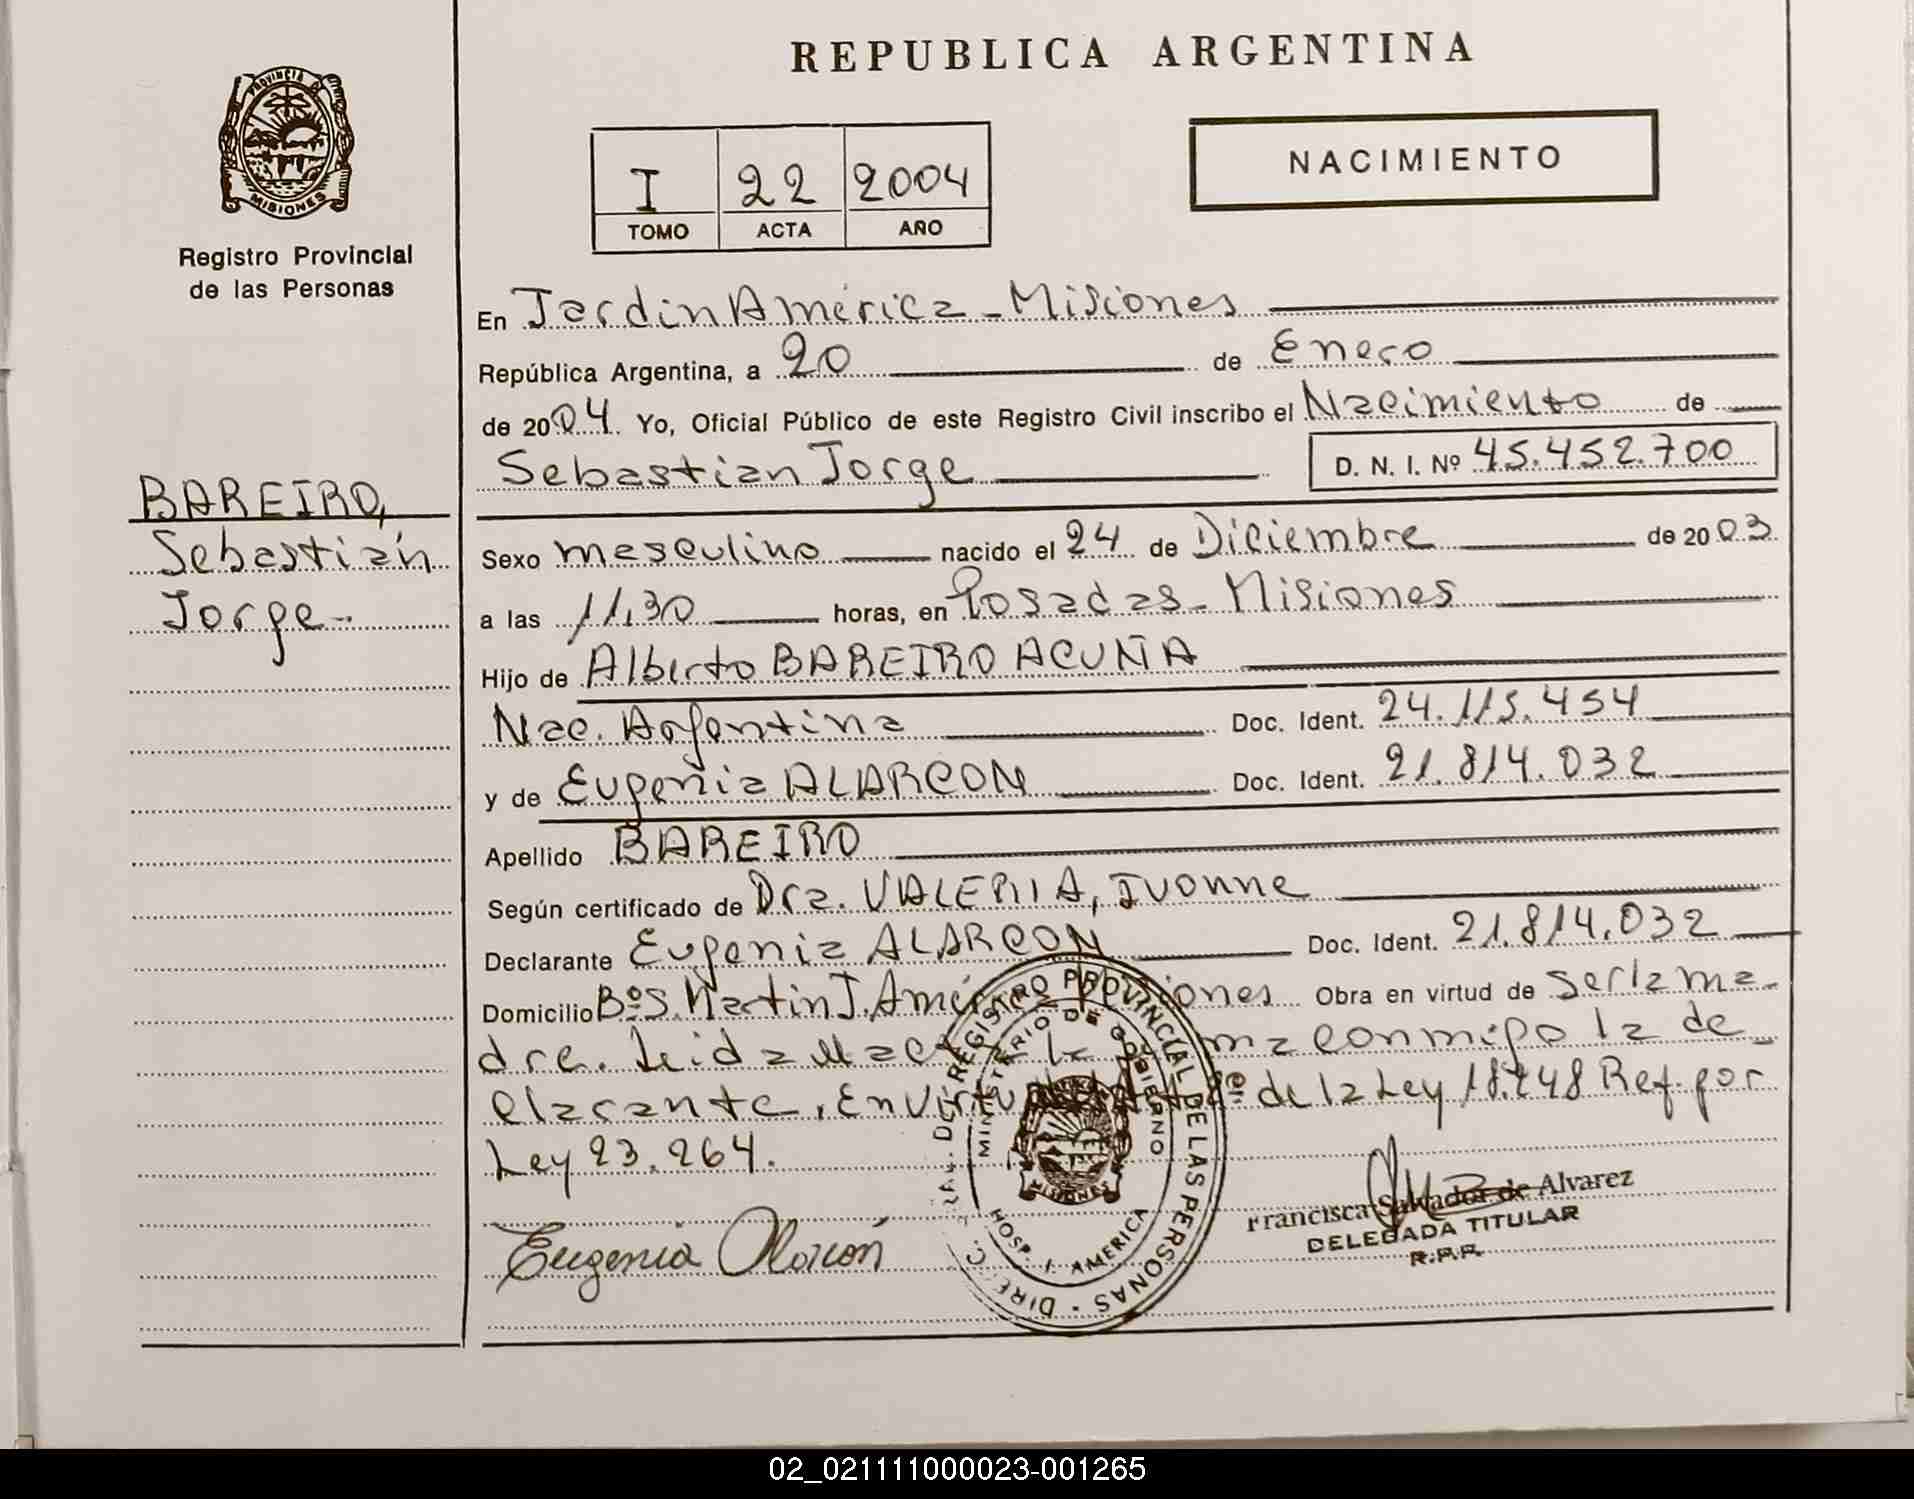 REPUBLICA ARGENTINA
PROVINCIA DE
MISIONES
Registro Provincial
de las Personas
I 22 2004
TOMO ACTA AÑO
NACIMIENTO
BAREIRO,
Sebastián
Jorge.-
En Jardin America - Misiones
República Argentina, a 20 de Enero
de 2004. Yo, Oficial Público de este Registro Civil inscribo el Nacimiento de
Sebastian Jorge D. N. I. Nº 45.452.700
Sexo masculino nacido el 24 de Diciembre de 2003
a las 11,30 horas, en Posadas - Misiones
Hijo de Alberto BAREIRO ACUÑA
Nac. Argentina Doc. Ident. 24.115.454
y de Eugenia ALARCON Doc. Ident. 21.814.032
Apellido BAREIRO
Según certificado de Dra. VALERIA, Ivonne
Declarante Eugenia ALARCON Doc. Ident. 21.814.032
Domicilio Bº S. Martin J. Amé iones Obra en virtud de ser la ma-
dre. Leida la ma conmigo la de
clarante. En virtu de la Ley 18.248 Ref. por
Ley 23.264.
Eugenia Alarcón
DIREC. GRAL. DE REGISTRO PROVINCIAL DE LAS PERSONAS
MINISTERIO DE GOBIERNO
MISIONES
HOSP. J. AMERICA
Francisca Salvador de Alvarez
DELEGADA TITULAR
R.P.P.
02_021111000023-001265